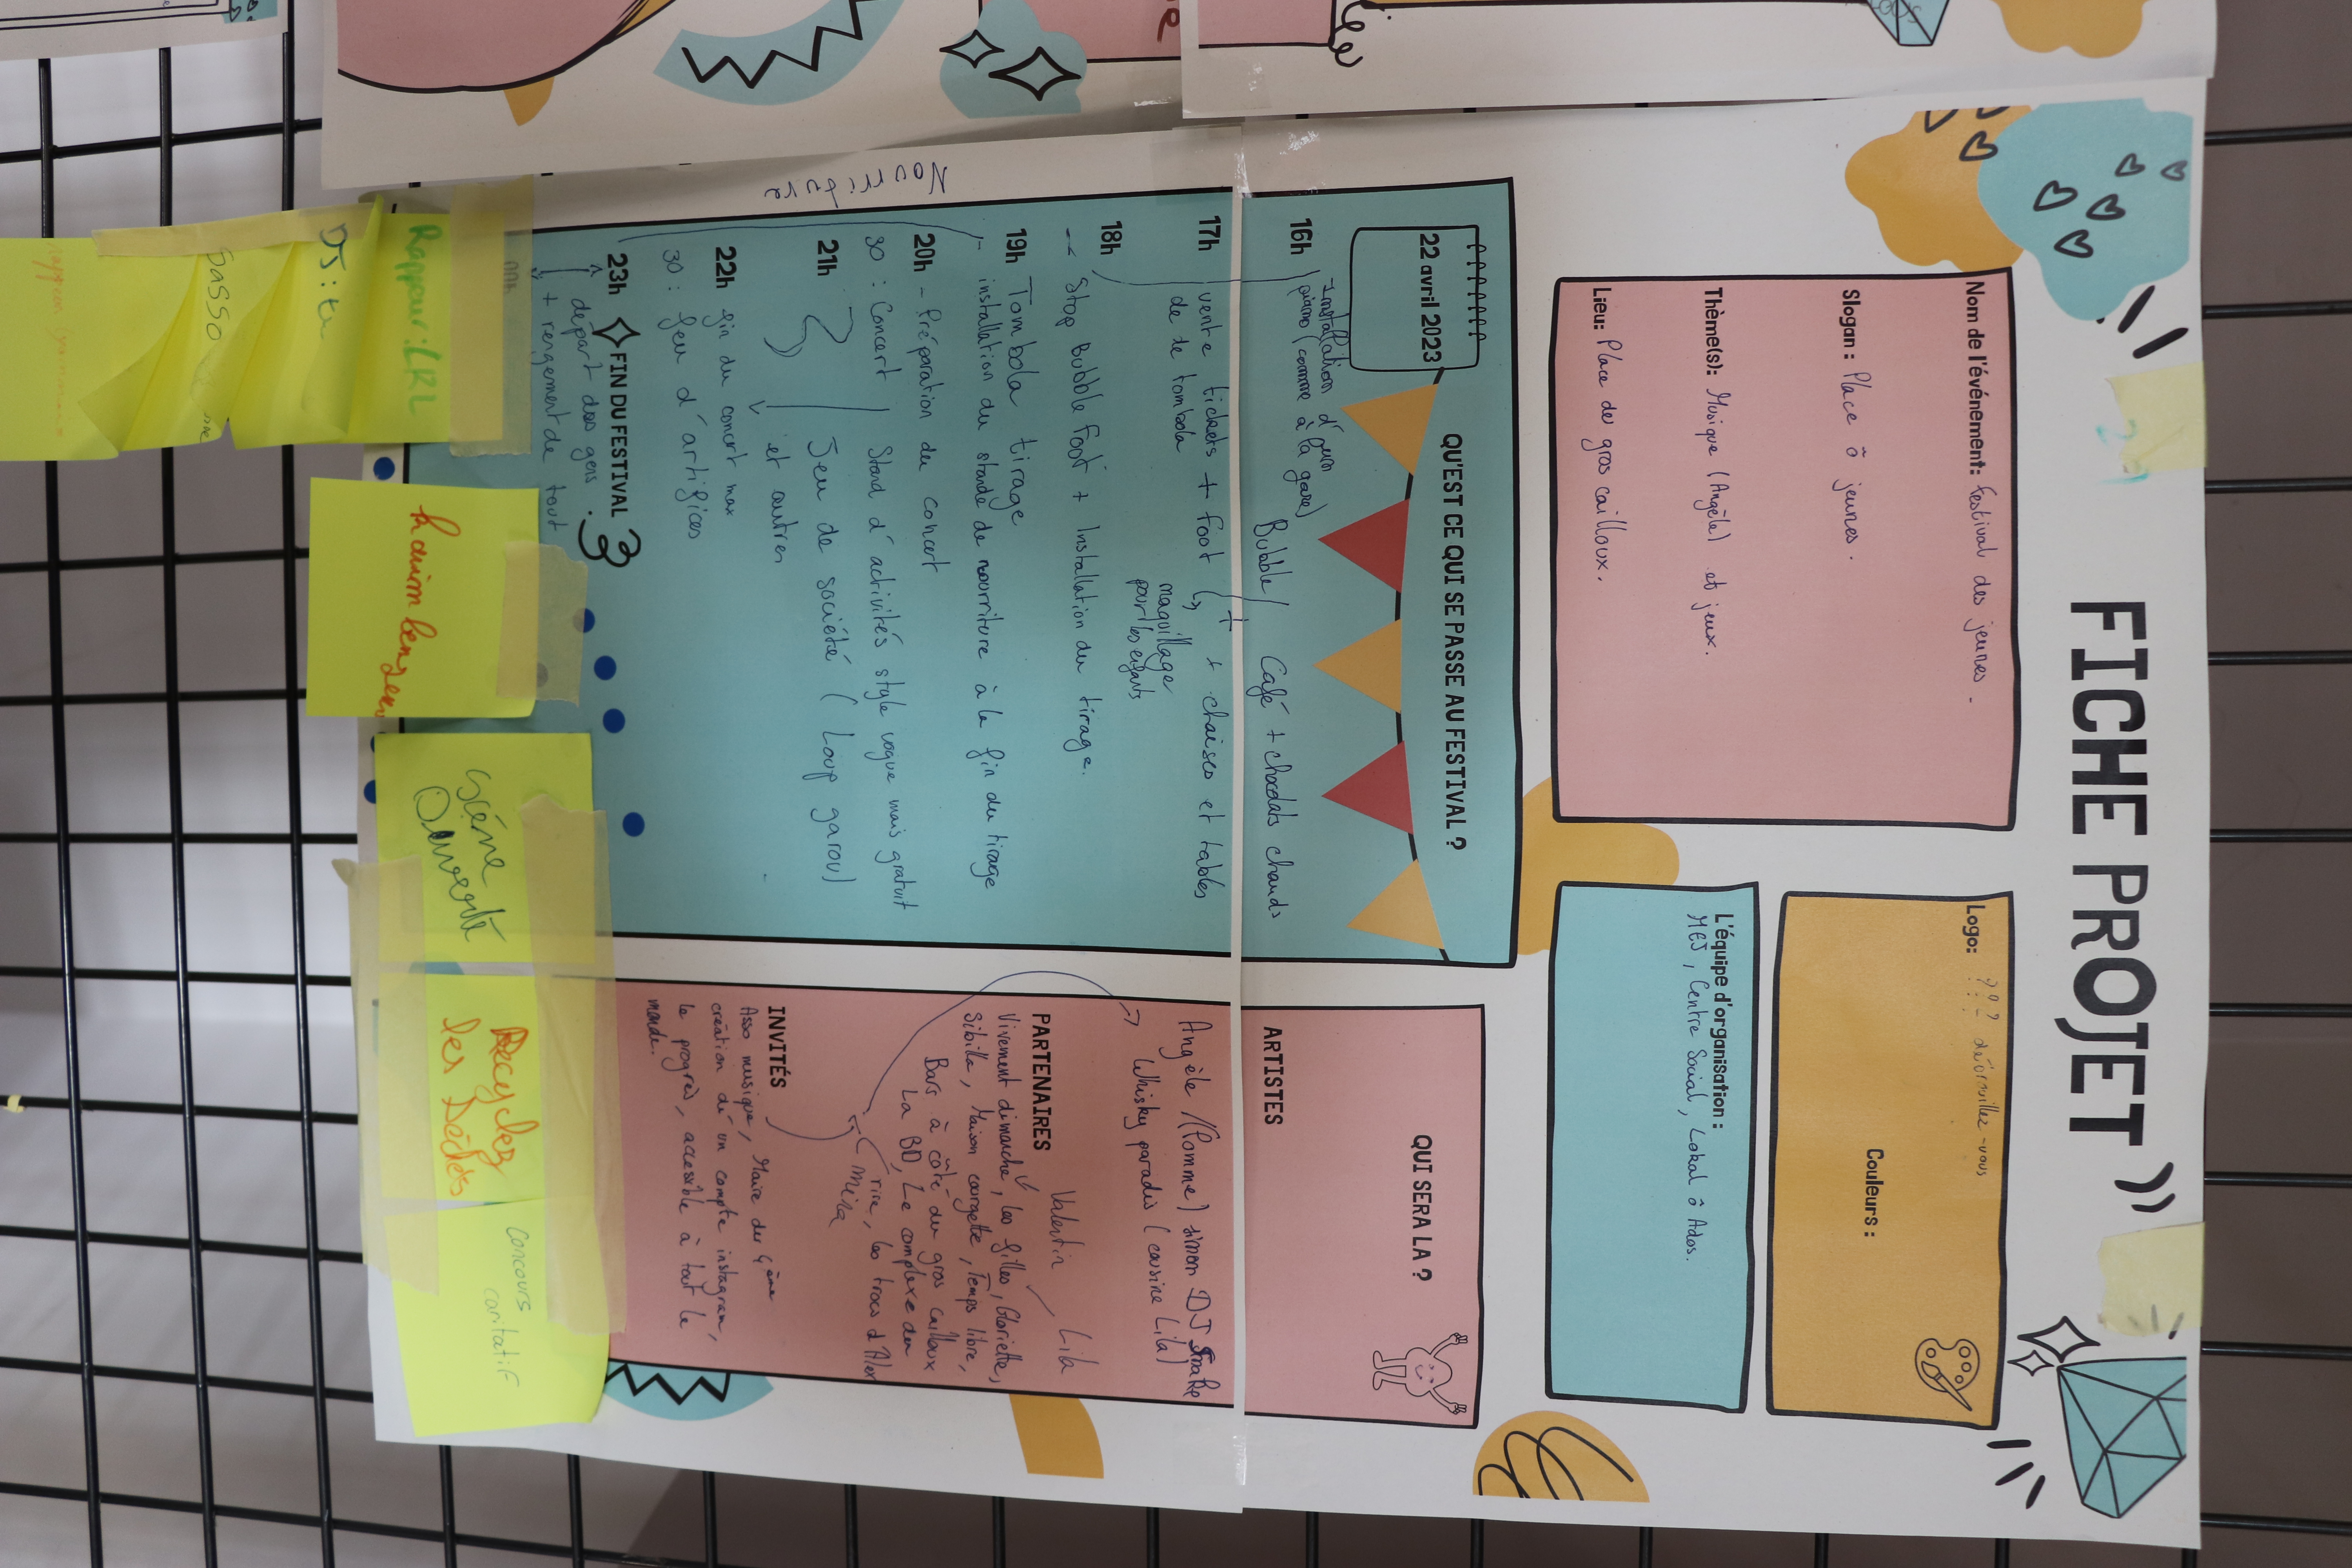 FICHE PROJET
Nom de l'événement: Festival des jeunes.
Slogan : Place ô jeunes.
Thème(s): Musique (Angèle) et jeux.
Lieu: Place des gros cailloux.
Logo: ??? débrouillez-vous
Couleurs :
L'équipe d'organisation :
MCJ, Centre Social, Lokal ô Ados.
QU'EST CE QUI SE PASSE AU FESTIVAL ?
22 avril 2023
Installation d'un
piano (comme à la gare)
16h Bubble / Café + chocolats chauds
17h vente tickets + foot + chaises et tables
de tombola
maquillage
pour les enfants
18h
Stop Bubble foot + Installation du tirage.
19h Tombola tirage
installation du stand de nourriture à la fin du tirage
20h - Préparation du concert
30 : Concert Stand d'activités style vogue mais gratuit
21h Jeu de société ( Loup garou)
et autres
22h fin du concert max
30 : feu d'artifices
23h FIN DU FESTIVAL
départ des gens.
+ rengement de tout
Nourriture
QUI SERA LA ?
ARTISTES
Angèle /(Pomme) simon DJ Snake
Whisky paradis (cousine Lila)
Valentin Lila
PARTENAIRES
Vivement dimanche, les filles, Gloriette,
Sibilla, Maison courgette, Temps libre,
Bars à côté du gros cailloux
La BD, Le complexe du
rire, les trocs d'Alex
Mina
INVITÉS
Asso musique, Maire du 4ème
création d'un compte instagram,
le progrès, accessible à tout le
monde.
Rappeur : LRL
DJ :
hakim
Scène
Ouverte
Recyclez
les Déchets
concours
caritatif